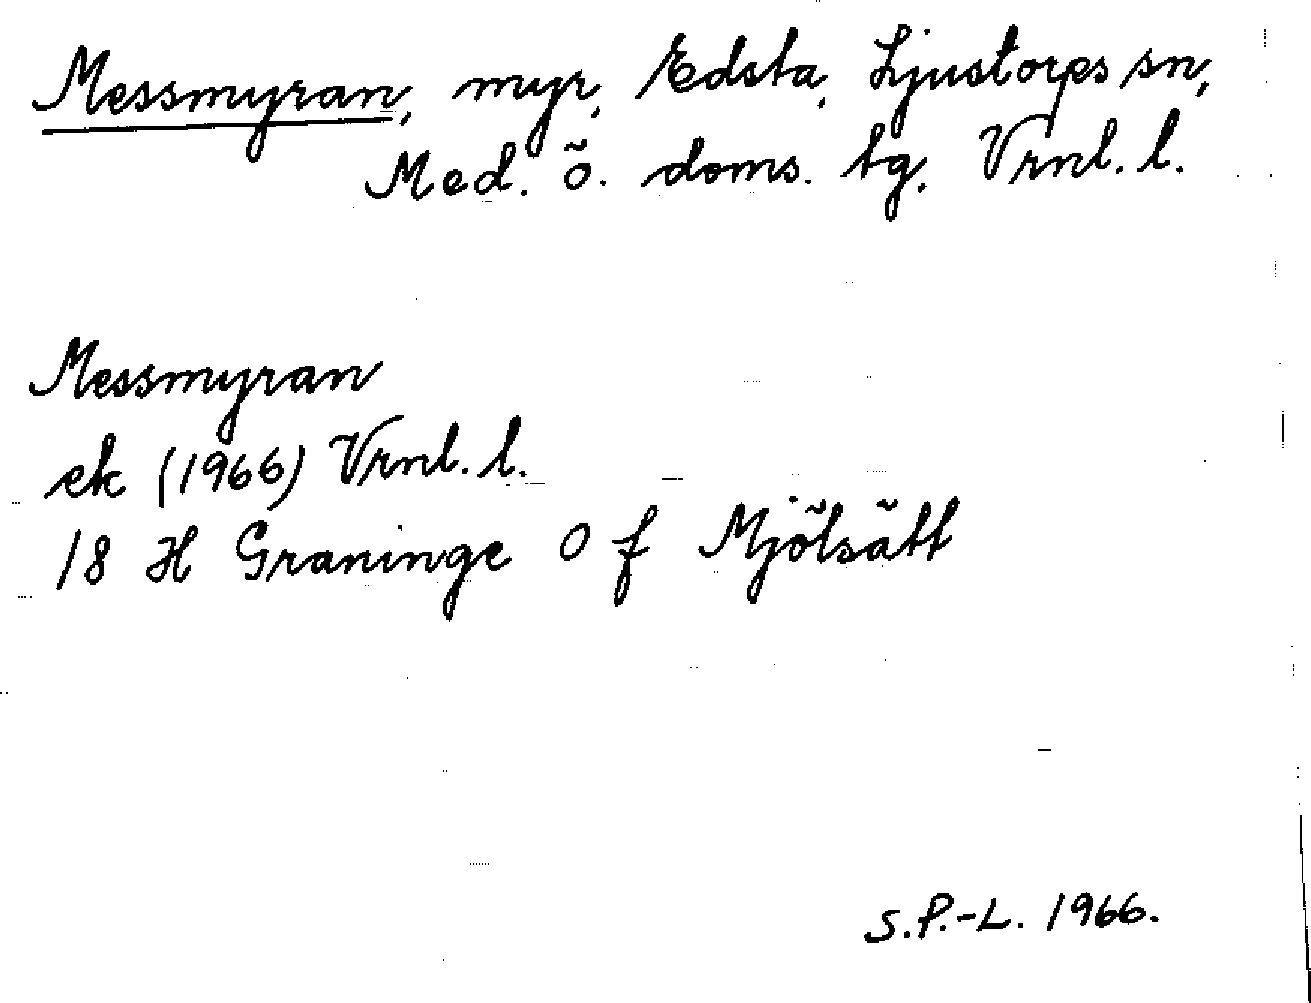 Messmyran, myr, Edsta, Ljustorps sn,
Med. ö. doms. tg, Vrnl. l.
Messmyran
ek (1966) Vrnl. l.
18 H Graninge O f Mjölsätt
S.P.-L. 1966.